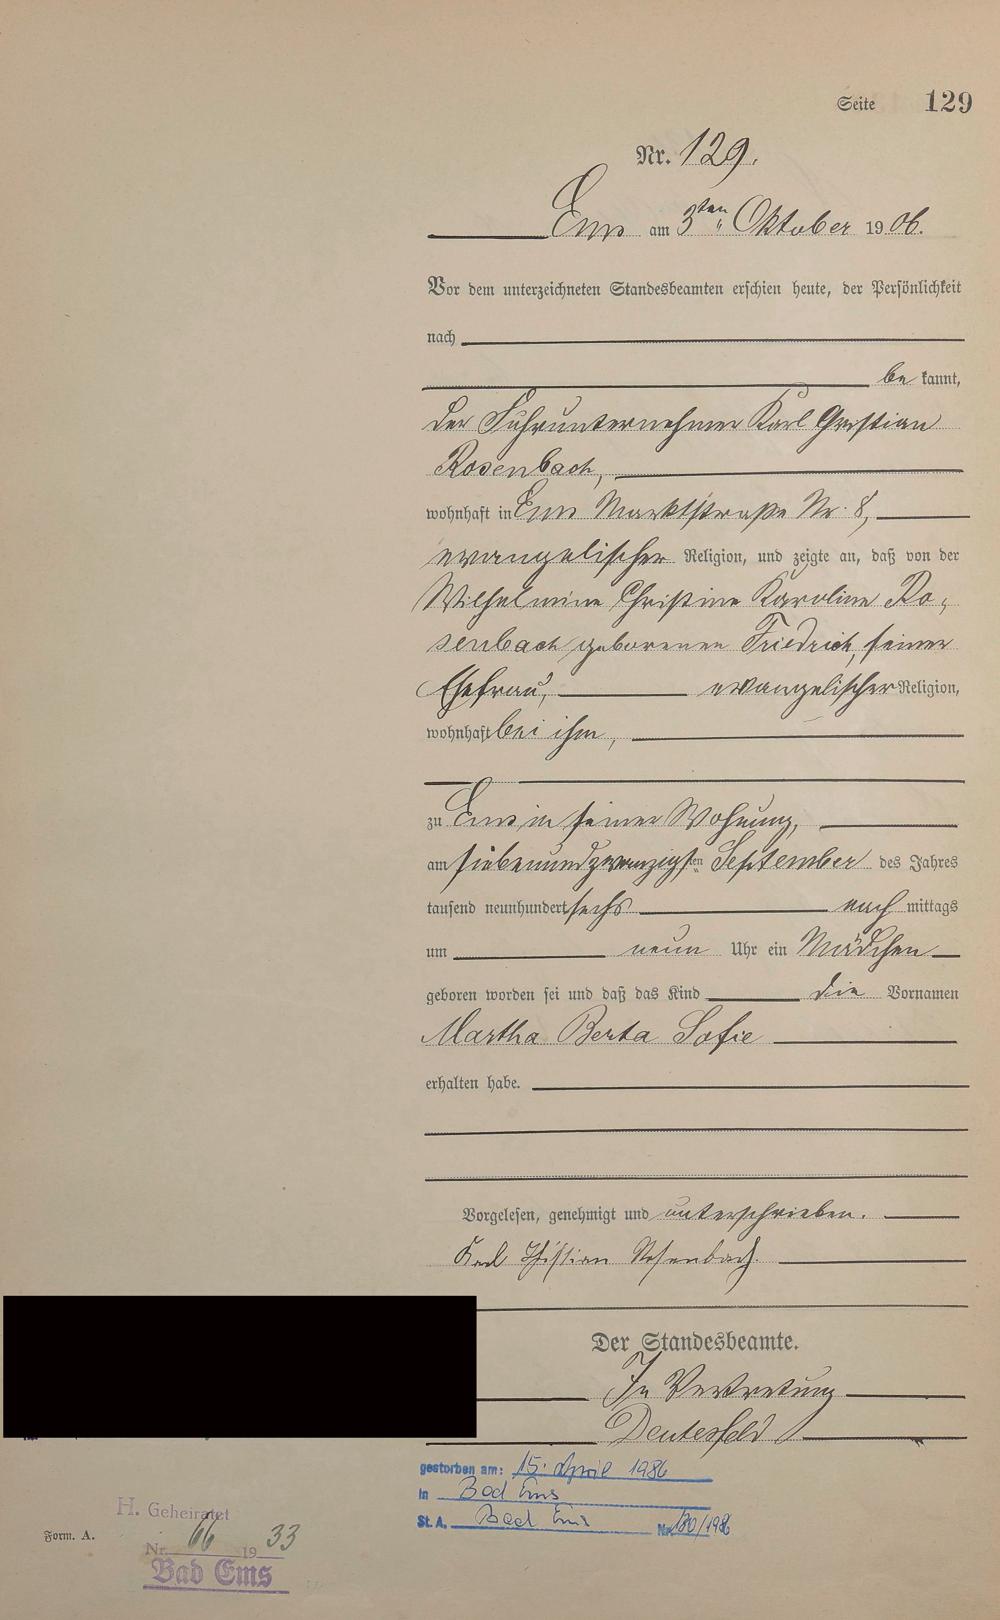 Seite 129
Nr. 129.
Ems am 3ten Oktober 1906.
Vor dem unterzeichneten Standesbeamten erschien heute, der Persönlichkeit
nach
be kannt,
der Fuhrunternehmer Karl Christian
Rosenbach,
wohnhaft in Ems Marktstraße Nr. 8,
evangelischer Religion, und zeigte an, daß von der
Wilhelmine Christine Karoline Ro-
senbach geborenen Friedrich, seiner
Ehefrau, evangelischer Religion,
wohnhaft bei ihm,
zu Ems in seiner Wohnung,
am siebenundzwanzigsten September des Jahres
tausend neunhundert sechs nach mittags
um neun Uhr ein Mädchen
geboren worden sei und daß das Kind die Vornamen
Martha Berta Sofie
erhalten habe.
Vorgelesen, genehmigt und unterschrieben.
Karl Christian Rosenbach.
Der Standesbeamte.
In Vertretung
gestorben am: 15. April 1986
in Bad Ems
St. A. Bad Ems Nr. /1986
H. Geheiratet
Form. A.
Nr. 66 1933
Bad Ems